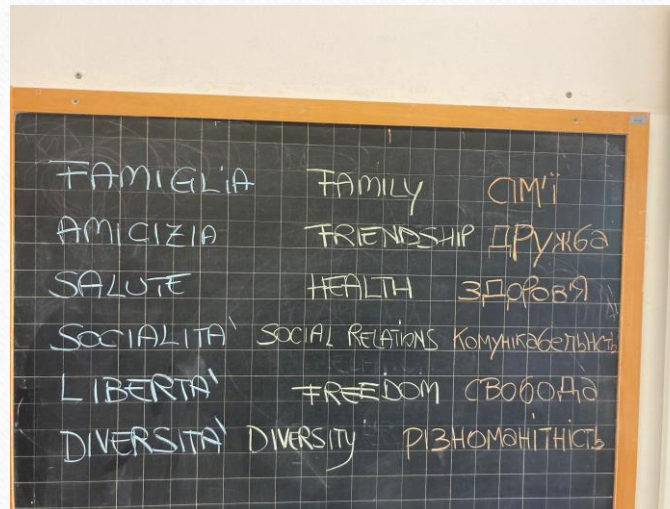 FAMIGLIA FAMILY СІМ'Ї
AMICIZIA FRIENDSHIP ДРУЖБА
SALUTE HEALTH ЗДОРОВ'Я
SOCIALITA' SOCIAL RELATIONS Комунікабельність
LIBERTA' FREEDOM СВОБОДА
DIVERSITA' DIVERSITY РІЗНОМАНІТНІСТЬ